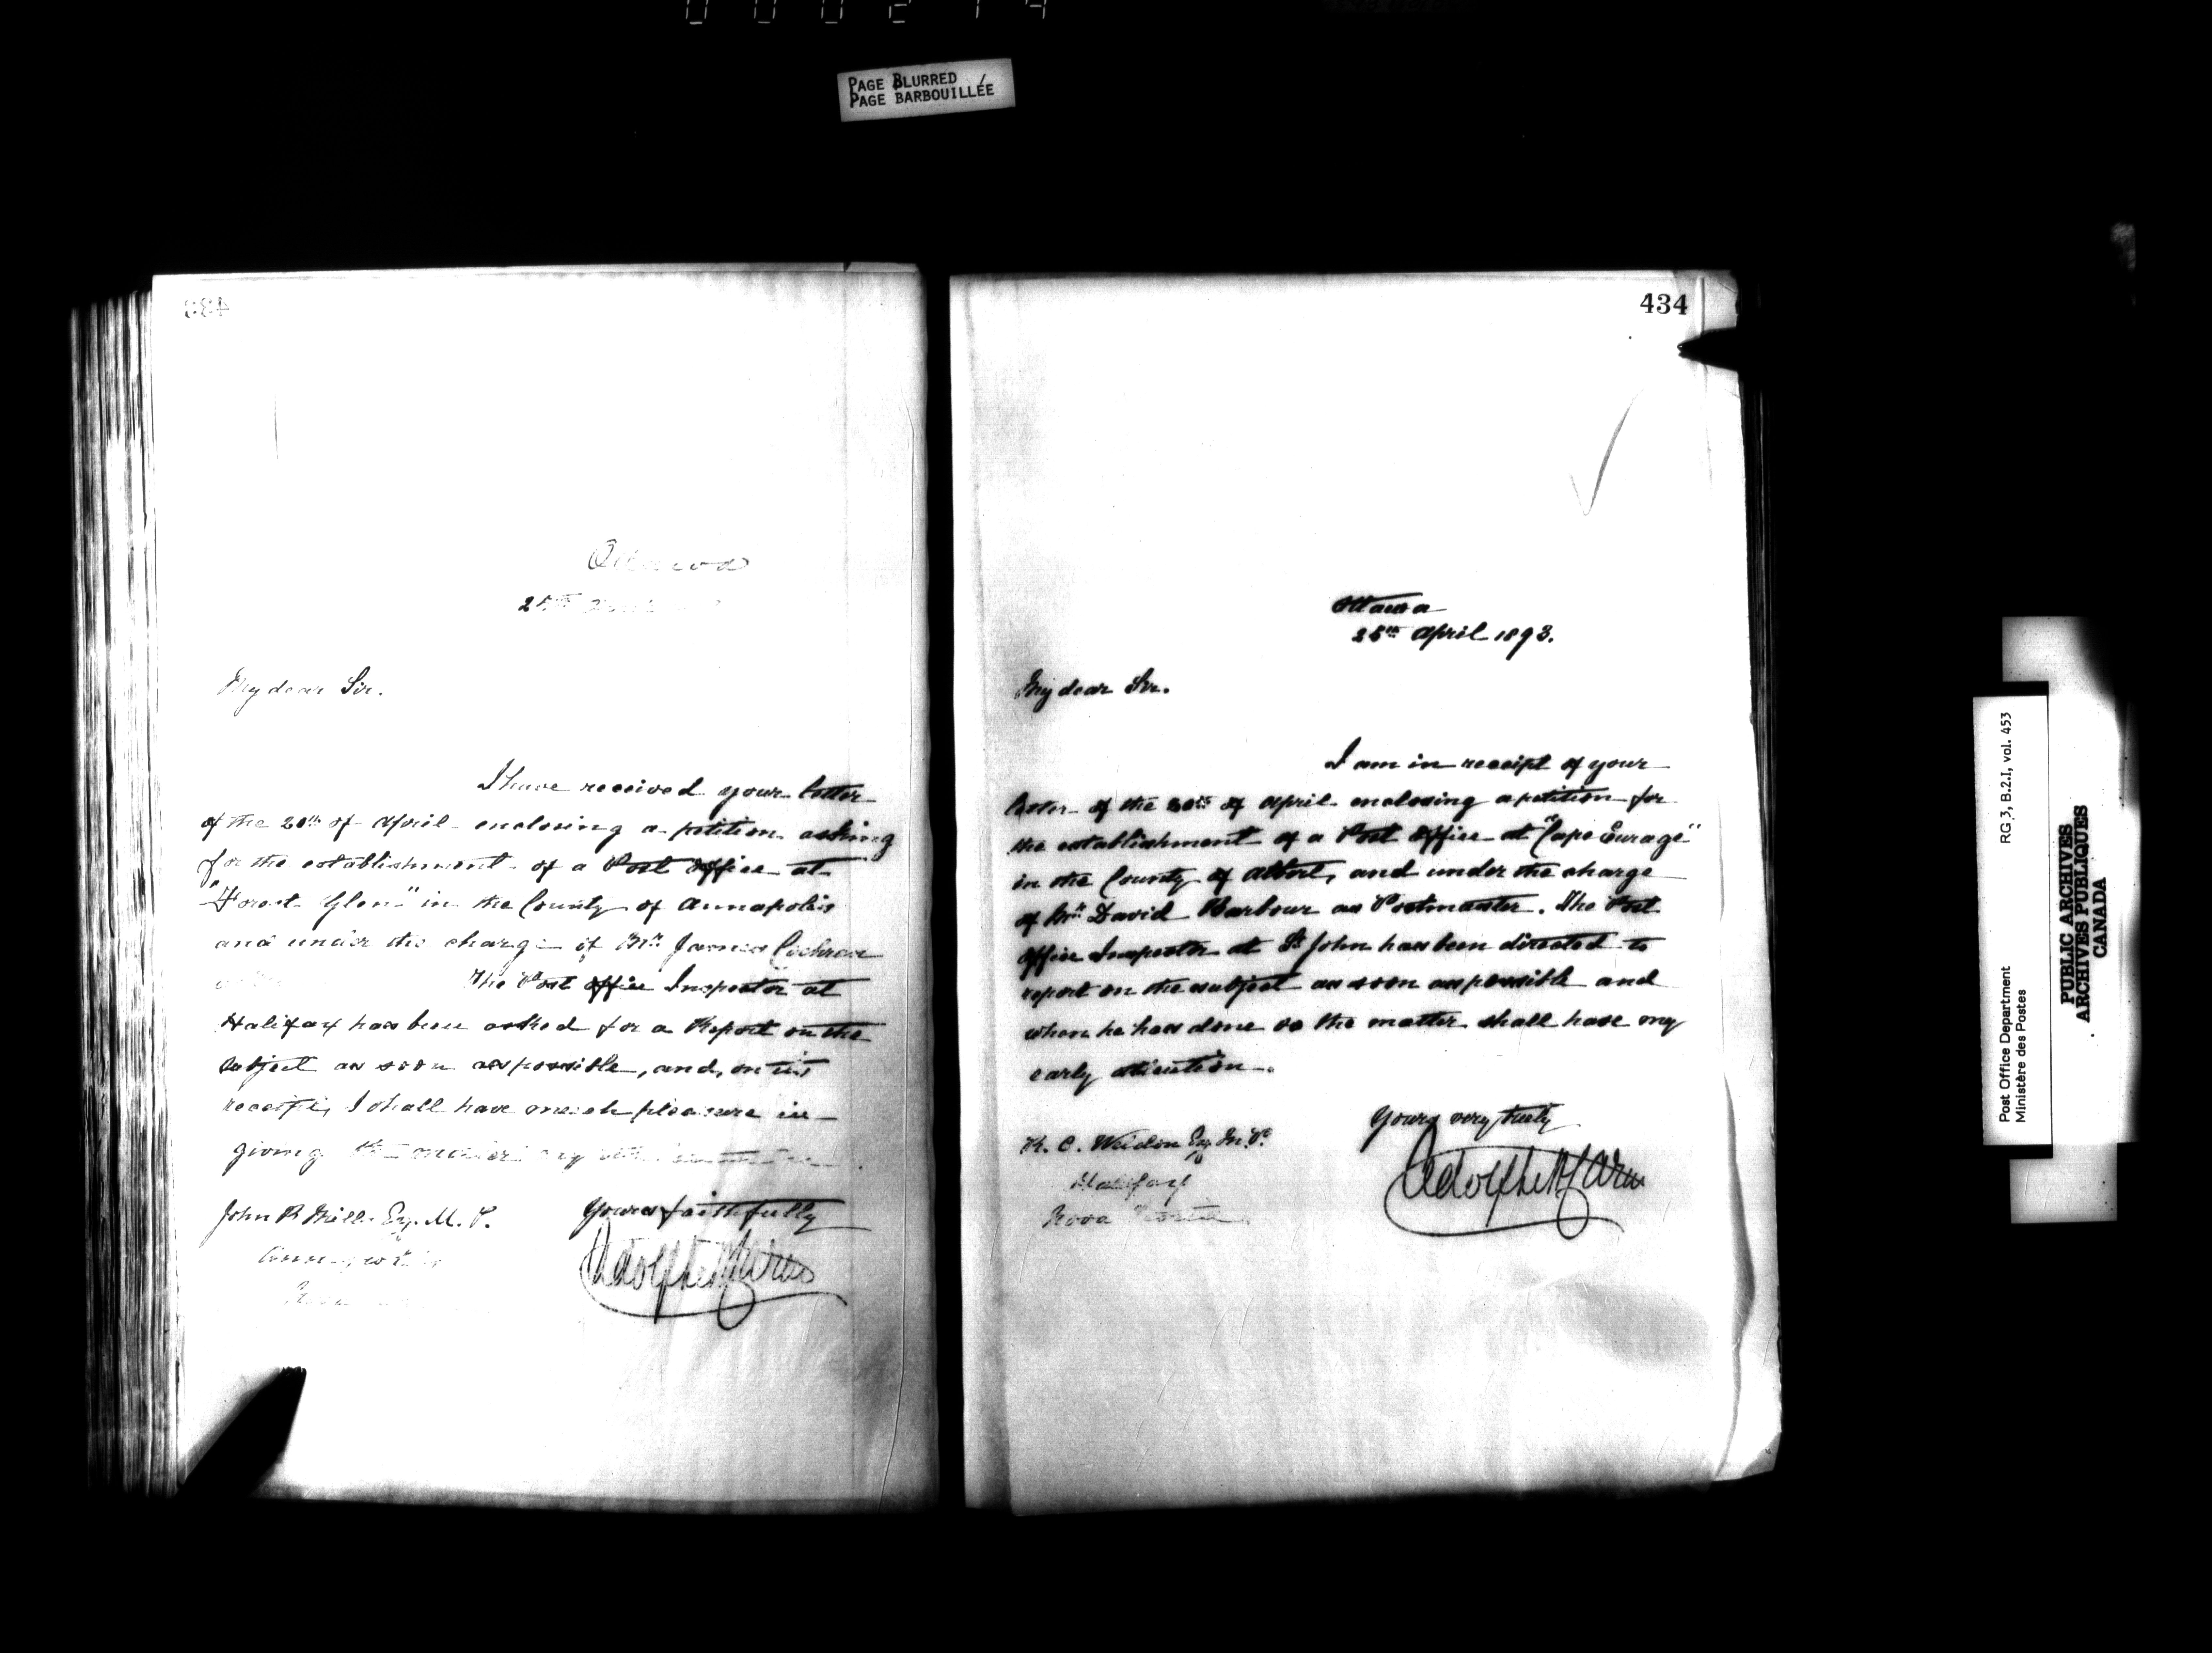 PAGE BLURRED
PAGE BARBOUILLÉE
433
Ottawa
25th
My dear Sir.
I have received your letter
of the 20th of April enclosing a petition asking
for the establishment of a Post Office at
"Forest Glen" in the County of Annapolis
and under the charge of Mr. James Cochran
The Post Office Inspector at
Halifax has been asked for a Report on the
subject as soon as possible, and, on its
receipt, I shall have much pleasure in
giving the matter my
John B Mills Esq. M. P.
Yours faithfully
Annapolis
Nova
434
Ottawa
25th April 1893.
My dear Sir.
I am in receipt of your
letter of the 20th of April enclosing a petition for
the establishment of a Post Office at "Cape Enrage"
in the County of Albert, and under the charge
of Mr. David Barbour as Postmaster. The Post
Office Inspector at St. John has been directed to
report on the subject as soon as possible and
when he has done so the matter shall have my
early attention.
Yours very truly
R. C. Weldon Esq. M. P.
Halifax
Nova Scotia
Post Office Department RG 3, B.2.I, vol. 453
Ministère des Postes
PUBLIC ARCHIVES
ARCHIVES PUBLIQUES
CANADA